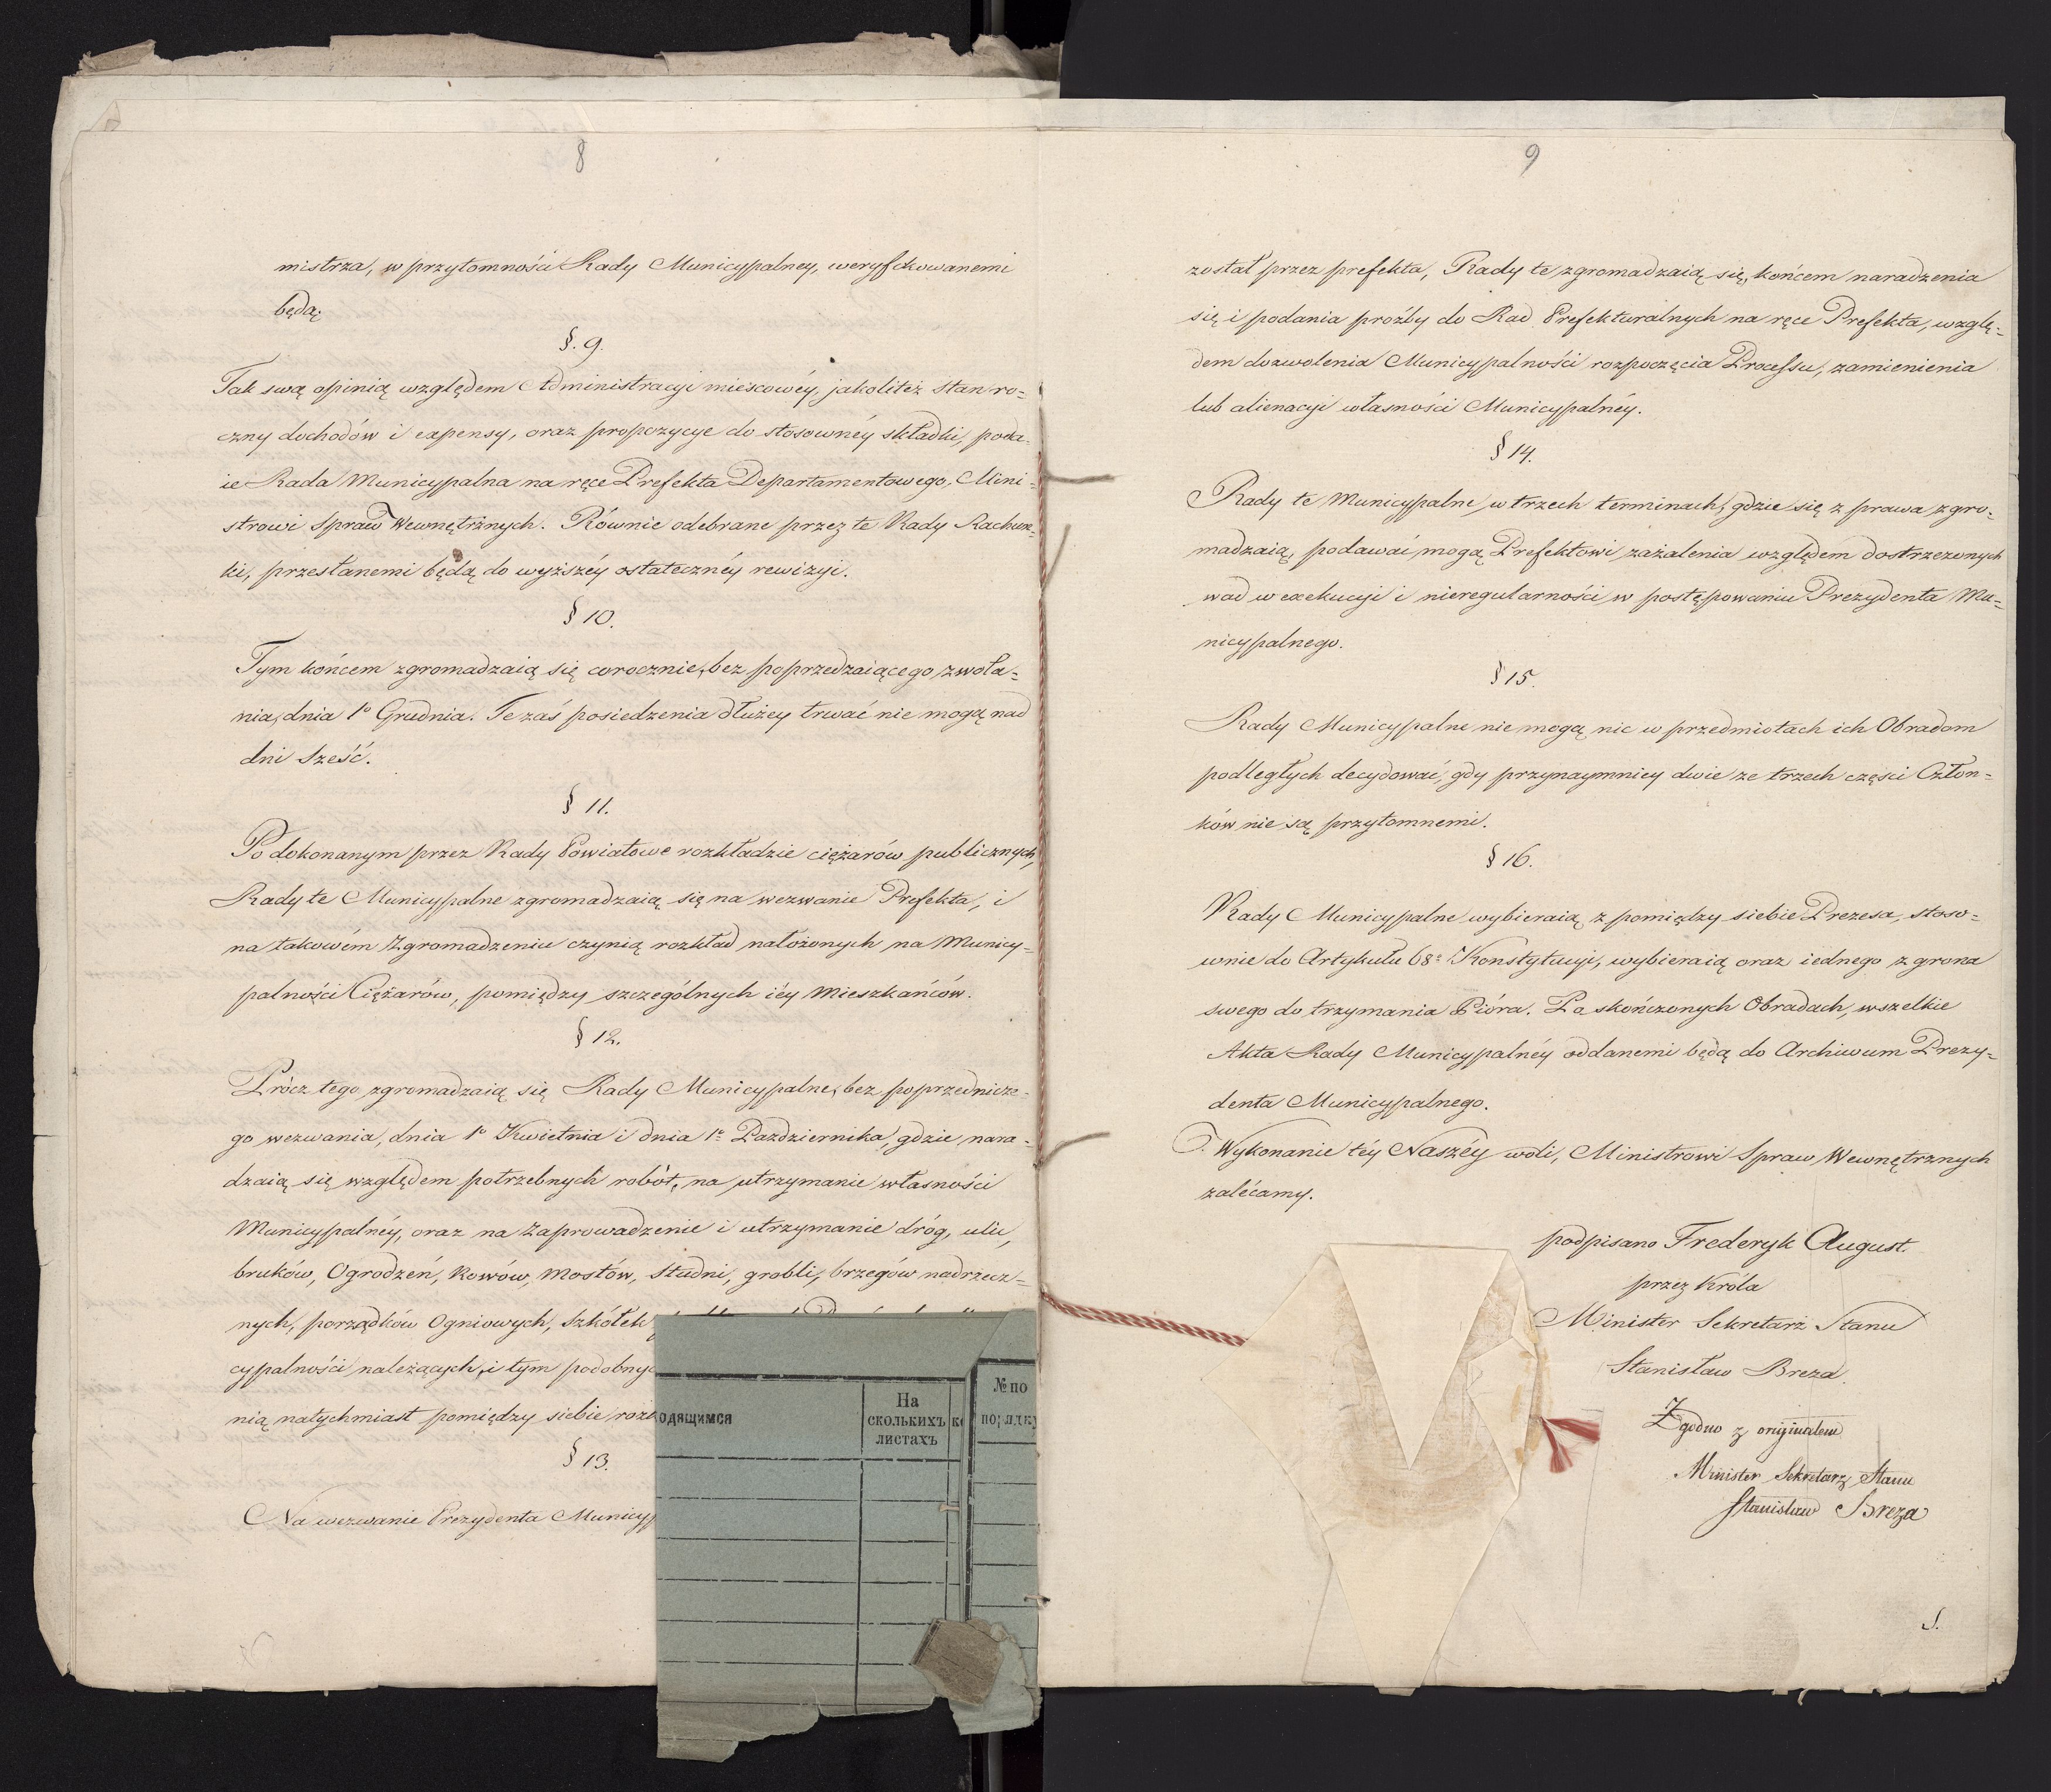 8
mistrza, w przytomności Rady Municypalney, weryfikowanemi
będą.
§. 9.
Tak swą opinią względem Administracyi mieyscowéy, jakoliteż stan ro=
czny dochodów i expensy, oraz propozycye do stosownéy składki, poda=
ie Rada Municypalna na ręce Prefekta Departamentowego, Mini=
strowi Spraw Wewnętrznych. Równie odebrane przez te Rady Rachun=
ki, przesłanemi będą do wyższéy ostatecznéy rewizyi.
§ 10.
Tym końcem zgromadzaią się corocznie, bez poprzedzaiącego zwoła=
nia, dnia 1º Grudnia. Te zaś posiedzenia dłużey trwać nie mogą nad
dni Sześć.
§ 11.
Po dokonanym przez Rady Powiatowe rozkładzie ciężarów publicznych,
Rady te Municypalne zgromadzaią się na wezwanie Prefekta, i
na takowém Zgromadzeniu czynią rozkład nałożonych na Municy=
palności Ciężarów, pomiędzy szczególnych iéy Mieszkańców.
§ 12.
Prócz tego zgromadzaią się Rady Municypalne, bez poprzednicze=
go wezwania, dnia 1º Kwietnia i dnia 1º Października, gdzie nara=
dzaią się względem potrzebnych robót, na utrzymanie własności
Municypalnéy, oraz na Zaprowadzenie i utrzymanie dróg, ulic,
bruków, Ogrodzeń, Rowów, Mostów, Studni, grobli, brzegów nadrzecz=
nych, porządków Ogniowych, Szkółek
cypalności należących, i tym podobnyc
nią natychmiast pomiędzy siebie roz
§ 13.
Na wezwanie Prezydenta Municyp
одящимся
На
сколькихъ
листахъ
№ по
порядку
9
został przez prefekta, Rady te zgromadzaią się, końcem naradzenia
się i podania proźby do Rad Prefekturalnych na ręce Prefekta, wzglę=
dem dozwolenia Municypalności rozpoczęcia Processu, zamienienia
lub alienacyi własności Municypalnéy.
§ 14.
Rady te Municypalne, w trzech terminach, gdzie się z prawa zgro=
madzaią, podawać mogą Prefektowi zażalenia względem dostrzeżonych
wad w exekucyi i nieregularności w postępowaniu Prezydenta Mu=
nicypalnego.
§ 15.
Rady Municypalne nie mogą nic w przedmiotach ich Obradom
podległych decydować, gdy przynaymniey dwie ze trzech części Człon=
ków nie są przytomnemi.
§ 16.
Rady Municypalne wybieraią z pomiędzy siebie Prezesa, stoso=
wnie do Artykułu 68º Konstytucyi, wybieraią oraz iednego z grona
swego do trzymania Pióra. Po skończonych Obradach, wszelkie
Akta Rady Municypalnéy oddanemi będą do Archiwum Prezy=
denta Municypalnego.
Wykonanie téy Naszéy woli, Ministrowi Spraw Wewnętrznych
zalécamy.
podpisano Frederyk August.
przez Króla
Minister Sekretarz Stanu
Stanisław Breza.
Zgodno z oryginałem
Minister Sekretarz Stanu
Stanisław Breza
S.